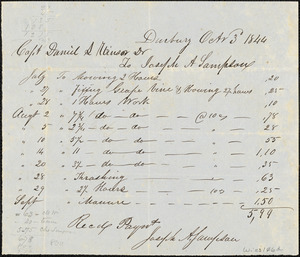 Duxbury Octr 3d 1844
Capt Daniel L Winsor Dr
To Joseph A Sampson
July To Mowing 2 Hours .20
" 27 " fixing Grape Vine & Mowing 2½ hours .25
" 28 " 1 Hours Work .10
Augt 2 " 7¾ do - do @ 10 cts .78
" 5 " 2¾ - do - do .28
" 10 " 5½ - do - do .55
" 16 " 11 - do - do 1,10
" 20 " 3½ - do - do .35
" 28 " Thrashing .63
" 29 " 2½ Hours .25
Sept " Manure 1.50
5,99
Recd Paymt
Joseph A Sampson